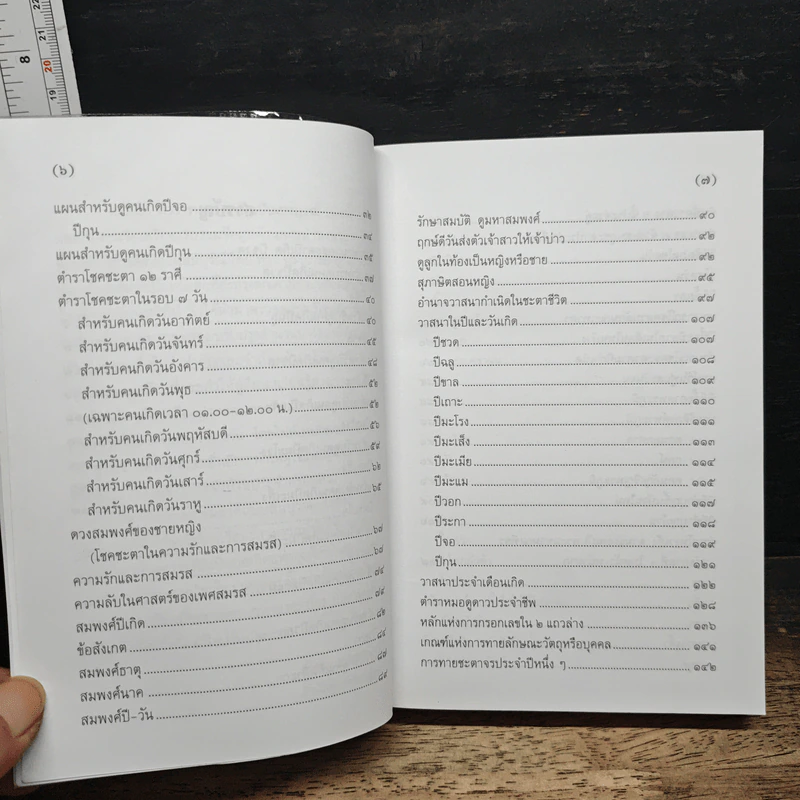 (๖)
แผนสำหรับดูคนเกิดปีจอ ๓๒
ปีกุน ๓๔
แผนสำหรับดูคนเกิดปีกุน ๓๕
ตำราโชคชะตา ๑๒ ราศี ๓๗
ตำราโชคชะตาในรอบ ๗ วัน ๔๐
สำหรับคนเกิดวันอาทิตย์ ๔๐
สำหรับคนเกิดวันจันทร์ ๔๕
สำหรับคนเกิดวันอังคาร ๔๘
สำหรับคนเกิดวันพุธ ๕๒
(เฉพาะคนเกิดเวลา ๐๑.๐๐-๑๒.๐๐ น.) ๕๒
สำหรับคนเกิดวันพฤหัสบดี ๕๖
สำหรับคนเกิดวันศุกร์ ๕๙
สำหรับคนเกิดวันเสาร์ ๖๒
สำหรับคนเกิดวันราหู ๖๕
ดวงสมพงศ์ของชายหญิง
(โชคชะตาในความรักและการสมรส) ๖๗
ความรักและการสมรส ๖๗
ความลับในศาสตร์ของเพศสมรส ๗๔
สมพงศ์ปีเกิด ๗๙
ข้อสังเกต ๘๒
สมพงศ์ธาตุ ๘๔
สมพงศ์นาค ๘๗
สมพงศ์ปี-วัน ๘๙
(๗)
รักษาสมบัติ ดูมหาสมพงศ์ ๙๐
ฤกษ์ดีวันส่งตัวเจ้าสาวให้เจ้าบ่าว ๙๒
ดูลูกในท้องเป็นหญิงหรือชาย ๙๒
สุภาษิตสอนหญิง ๙๕
อำนาจวาสนากำเนิดในชะตาชีวิต ๙๗
วาสนาในปีและวันเกิด ๑๐๗
ปีชวด ๑๐๗
ปีฉลู ๑๐๘
ปีขาล ๑๐๙
ปีเถาะ ๑๑๐
ปีมะโรง ๑๑๑
ปีมะเส็ง ๑๑๓
ปีมะเมีย ๑๑๔
ปีมะแม ๑๑๕
ปีวอก ๑๑๗
ปีระกา ๑๑๘
ปีจอ ๑๑๙
ปีกุน ๑๒๑
วาสนาประจำเดือนเกิด ๑๒๒
ตำราหมอดูดาวประจำชีพ ๑๒๘
หลักแห่งการกรอกเลขใน ๒ แถวล่าง ๑๓๖
เกณฑ์แห่งการทายลักษณะวัตถุหรือบุคคล ๑๔๑
การทายชะตาจรประจำปีหนึ่ง ๆ ๑๔๒
8
22
21
20
19